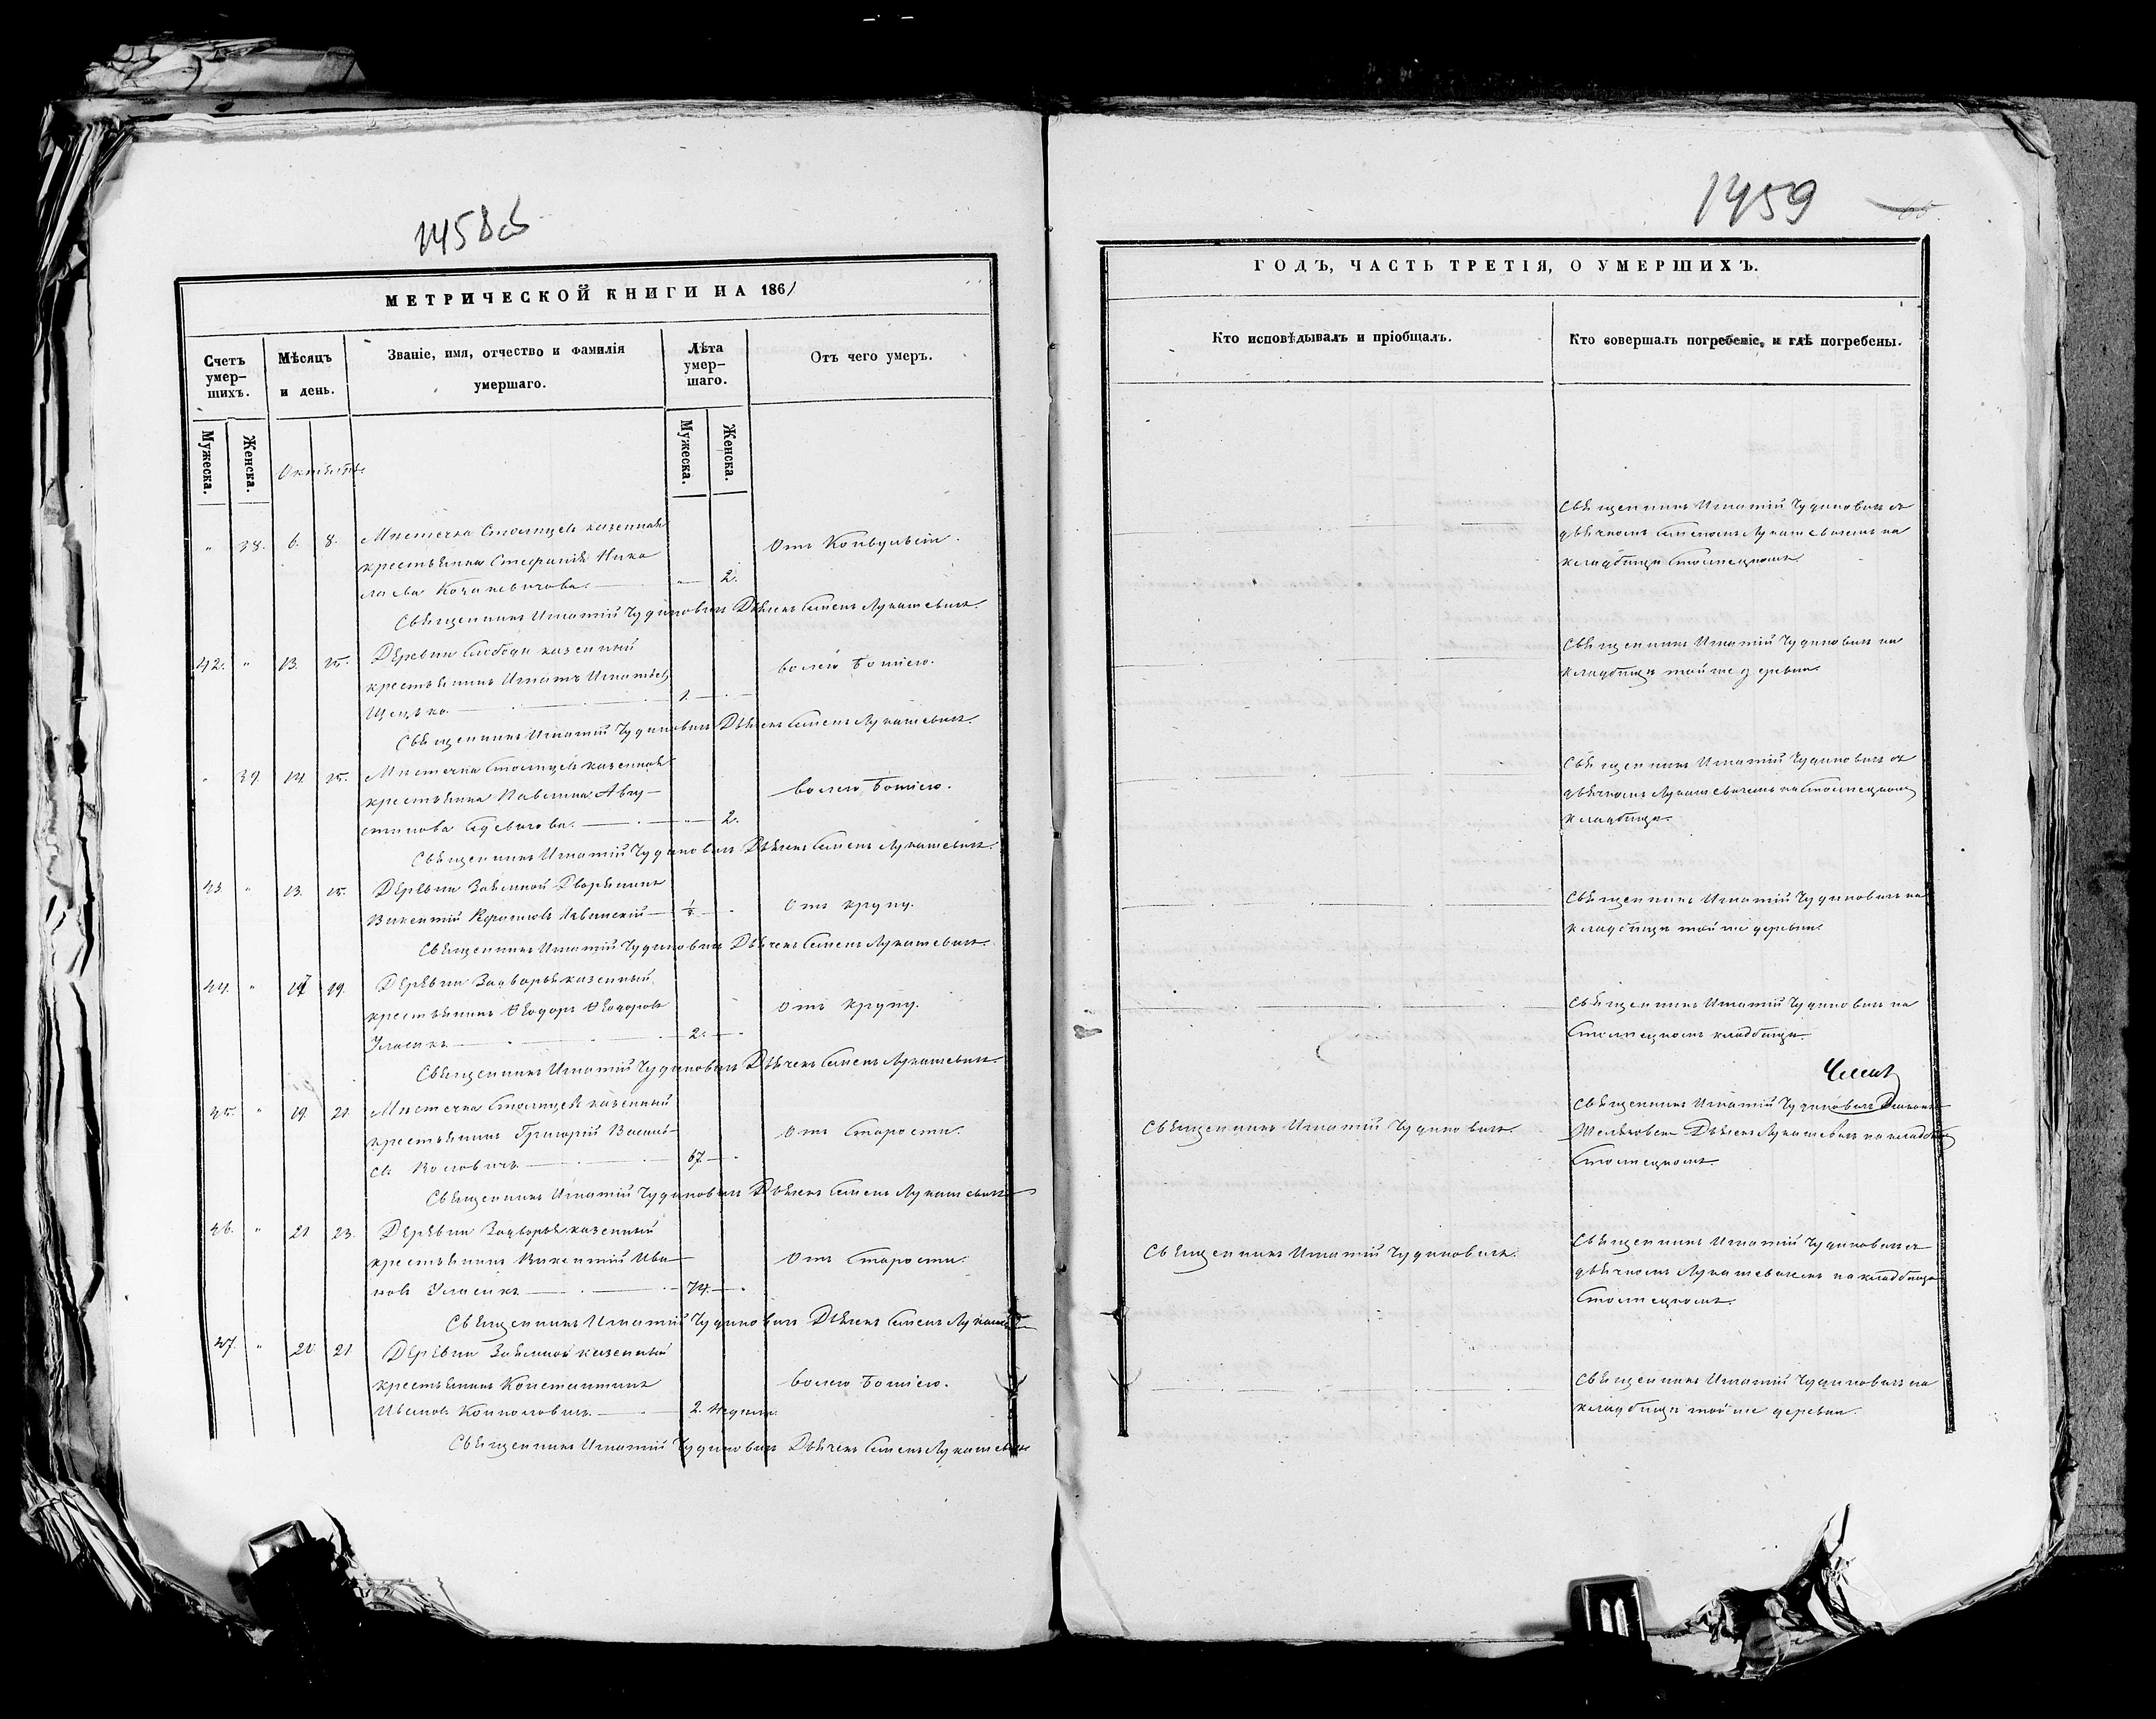 1458об
МЕТРИЧЕСКОЙ КНИГИ НА 1861
Счетъ умер-шихъ.
Мѣсяцъ и день.
Званіе, имя, отчество и фамилія умершаго.
Лѣта умер-шаго.
Отъ чего умеръ.
Мужеска.
Женска.
Мужеска.
Женска.
Октябрь
" 38. 6. 8. Мѣстечка Столпцевъ казенная
крестьянка Стефанія Нико
лаева — " — 2. Отъ Конвульсіи.
Священникъ Игнатій Чудиновичъ Дьячекъ Семенъ Лукашевичъ.
42. " 13. 15. Деревни Слободы казенный
крестьянинъ Игнатъ Игнатьевъ
— 1. — волею Божіею.
Священникъ Игнатій Чудиновичъ Дьячекъ Семенъ Лукашевичъ.
" 39. 14. 15. Мѣстечка Столпцевъ казенная
крестьянка Павлина Авгу-
стинова — " — 2. волею Божіею.
Священникъ Игнатій Чудиновичъ Дьячекъ Семенъ Лукашевичъ.
43. " 13. 15. Деревни Заямной Дворянинъ
Викентій — Отъ крупу.
Священникъ Игнатій Чудиновичъ Дьячекъ Семенъ Лукашевичъ.
44. " 17 19. Деревни Задворья казенный
крестьянинъ Ѳеодоръ Ѳеодоровъ
Уласикъ — 2. — Отъ крупу.
Священникъ Игнатій Чудиновичъ Дьячекъ Семенъ Лукашевичъ.
45. " 19. 21. Мѣстечка Столпцевъ казенный
крестьянинъ Григорій Василь-
евъ — 67. — Отъ Старости.
Священникъ Игнатій Чудиновичъ Дьячекъ Семенъ Лукашевичъ
46. " 21 23. Деревни Задворья казенный
крестьянинъ Викентій Ива-
новъ Уласикъ — 74. — Отъ Старости.
Священникъ Игнатій Чудиновичъ Дьячекъ Семенъ Лукашевичъ
47. " 20 21. Деревни Заямной казенный
крестьянинъ Константинъ
Ивановъ — 2. недели. волею Божіею.
Священникъ Игнатій Чудиновичъ Дьячекъ Семенъ Лукашевичъ
1459
ГОДЪ, ЧАСТЬ ТРЕТІЯ, О УМЕРШИХЪ.
Кто исповѣдывалъ и пріобщалъ.
Кто совершалъ погребеніе, и гдѣ погребены.
Священникъ Игнатій Чудиновичъ съ
дьячкомъ Семеномъ Лукашевичемъ на
кладбищѣ Столпецкомъ.
Священникъ Игнатій Чудиновичъ на
кладбищѣ той же деревни.
Священникъ Игнатій Чудиновичъ съ
дьячкомъ Лукашевичемъ на Столпецкомъ
кладбищѣ.
Священникъ Игнатій Чудиновичъ на
кладбищѣ той же деревни.
Священникъ Игнатій Чудиновичъ на
Столпецкомъ кладбищѣ.
Священникъ Игнатій Чудиновичъ.
Священникъ Игнатій Чудиновичъ
Дьячекъ Лукашевичъ на кладбищѣ
Столпецкомъ.
Священникъ Игнатій Чудиновичъ.
Священникъ Игнатій Чудиновичъ съ
дьячкомъ Лукашевичемъ на кладбищѣ
Столпецкомъ.
Священникъ Игнатій Чудиновичъ на
кладбищѣ той же деревни.